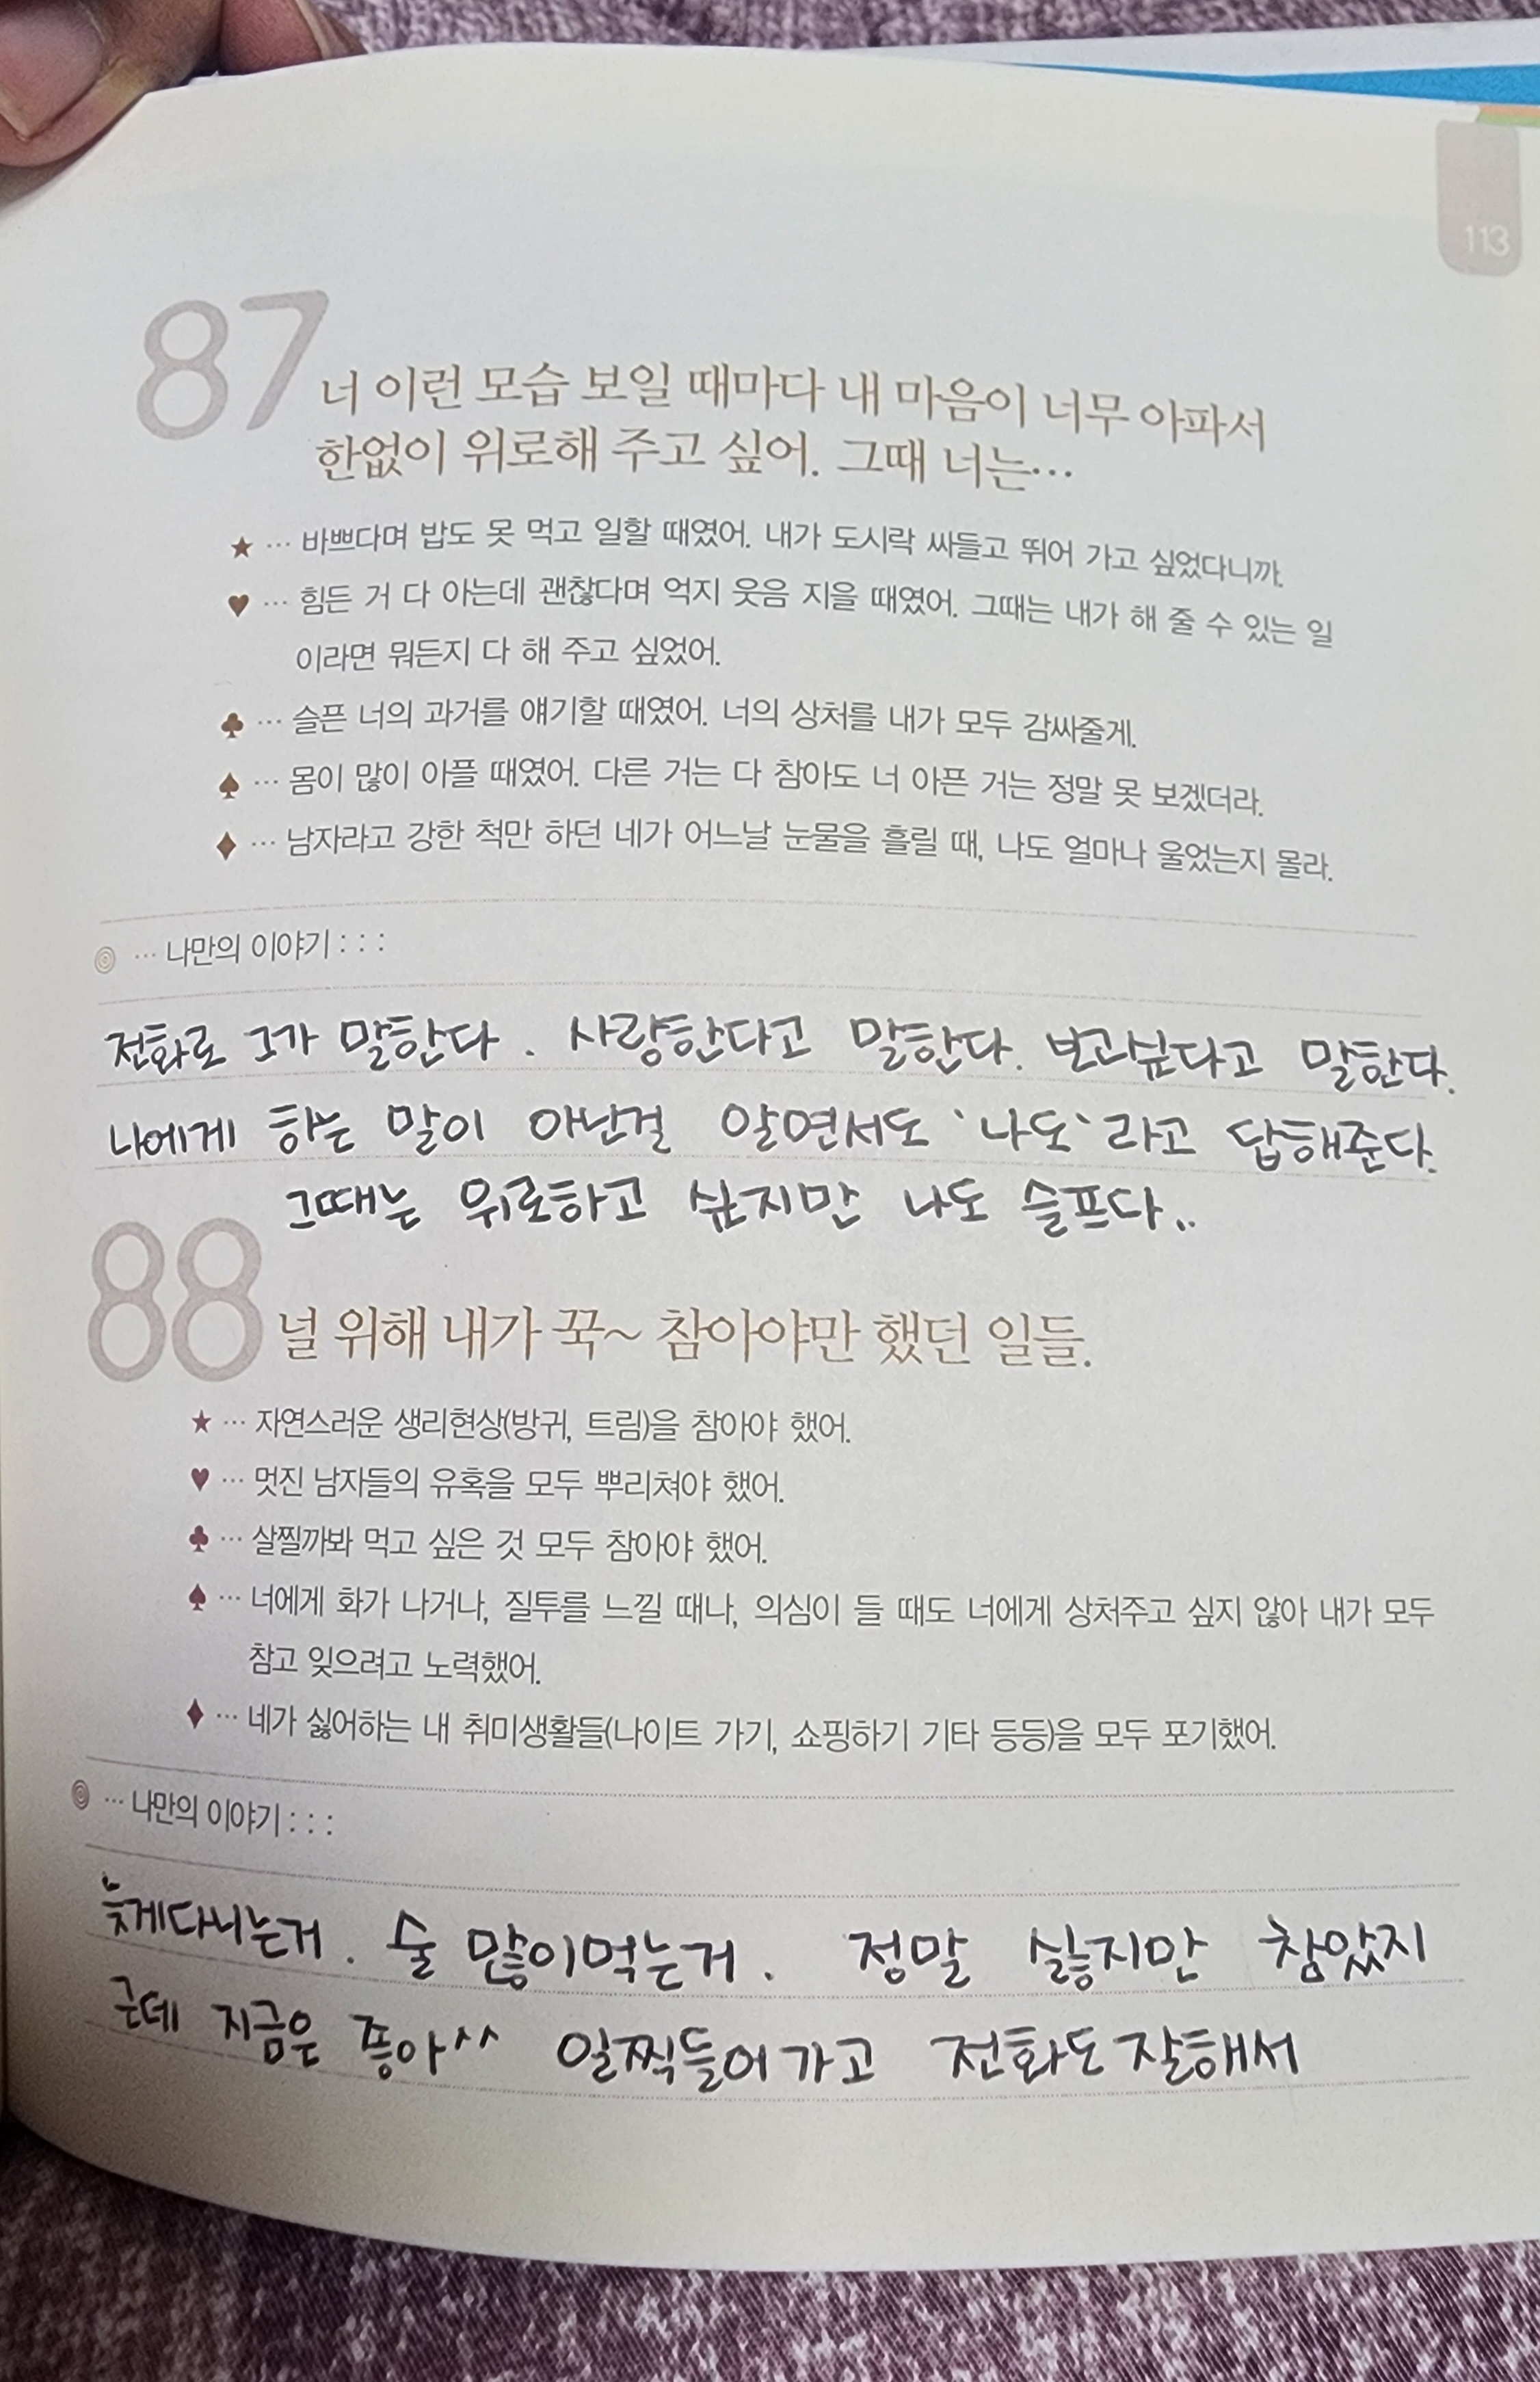 113
87
너 이런 모습 보일 때마다 내 마음이 너무 아파서
한없이 위로해 주고 싶어. 그때 너는…
★ … 바쁘다며 밥도 못 먹고 일할 때였어. 내가 도시락 싸들고 뛰어 가고 싶었다니까.
♥ … 힘든 거 다 아는데 괜찮다며 억지 웃음 지을 때였어. 그때는 내가 해 줄 수 있는 일
이라면 뭐든지 다 해 주고 싶었어.
♣ … 슬픈 너의 과거를 얘기할 때였어. 너의 상처를 내가 모두 감싸줄게.
♠ … 몸이 많이 아플 때였어. 다른 거는 다 참아도 너 아픈 거는 정말 못 보겠더라.
♦ … 남자라고 강한 척만 하던 네가 어느날 눈물을 흘릴 때, 나도 얼마나 울었는지 몰라.
… 나만의 이야기 : : :
전화로 그가 말한다. 사랑한다고 말한다. 보고싶다고 말한다.
나에게 하는 말이 아닌걸 알면서도 '나도' 라고 답해준다.
그때는 위로하고 싶지만 나도 슬프다..
88
널 위해 내가 꾹~ 참아야만 했던 일들.
★ … 자연스러운 생리현상(방귀, 트림)을 참아야 했어.
♥ … 멋진 남자들의 유혹을 모두 뿌리쳐야 했어.
♣ … 살찔까봐 먹고 싶은 것 모두 참아야 했어.
♠ … 너에게 화가 나거나, 질투를 느낄 때나, 의심이 들 때도 너에게 상처주고 싶지 않아 내가 모두
참고 잊으려고 노력했어.
♦ … 네가 싫어하는 내 취미생활들(나이트 가기, 쇼핑하기 기타 등등)을 모두 포기했어.
… 나만의 이야기 : : :
늦게다니는거. 술 많이먹는거. 정말 싫지만 참았지
근데 지금은 좋아^^ 일찍들어가고 전화도잘해서